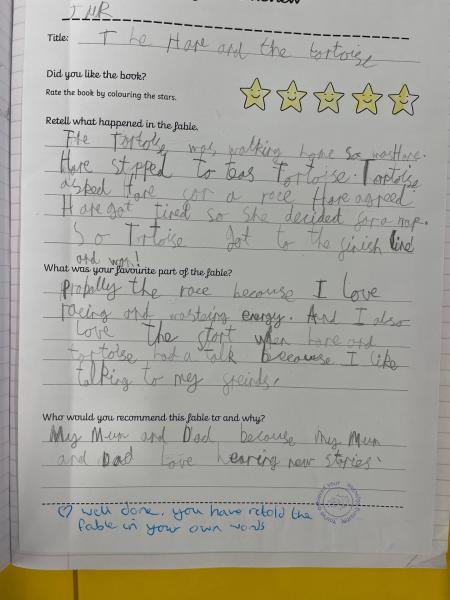 JMR
Title: The Hare and the tortoise
Did you like the book?
Rate the book by colouring the stars.
Retell what happened in the fable.
The Tortoise was walking home so was Hare.
Hare stopped to teas Tortoise. Tortoise
asked Hare for a race Hare agreed
Hare got tired so she decided for a nap.
So Tortoise got to the finish line
and won!
What was your favourite part of the fable?
propally the race because I love
racing and wasteing energy. And I also
love the start when hare and
tortoise had a talk because I like
talking to my freinds.
Who would you recommend this fable to and why?
My Mum and Dad because my Mum
and Dad love hearing new stories.
♡ well done, you have retold the
fable in your own words